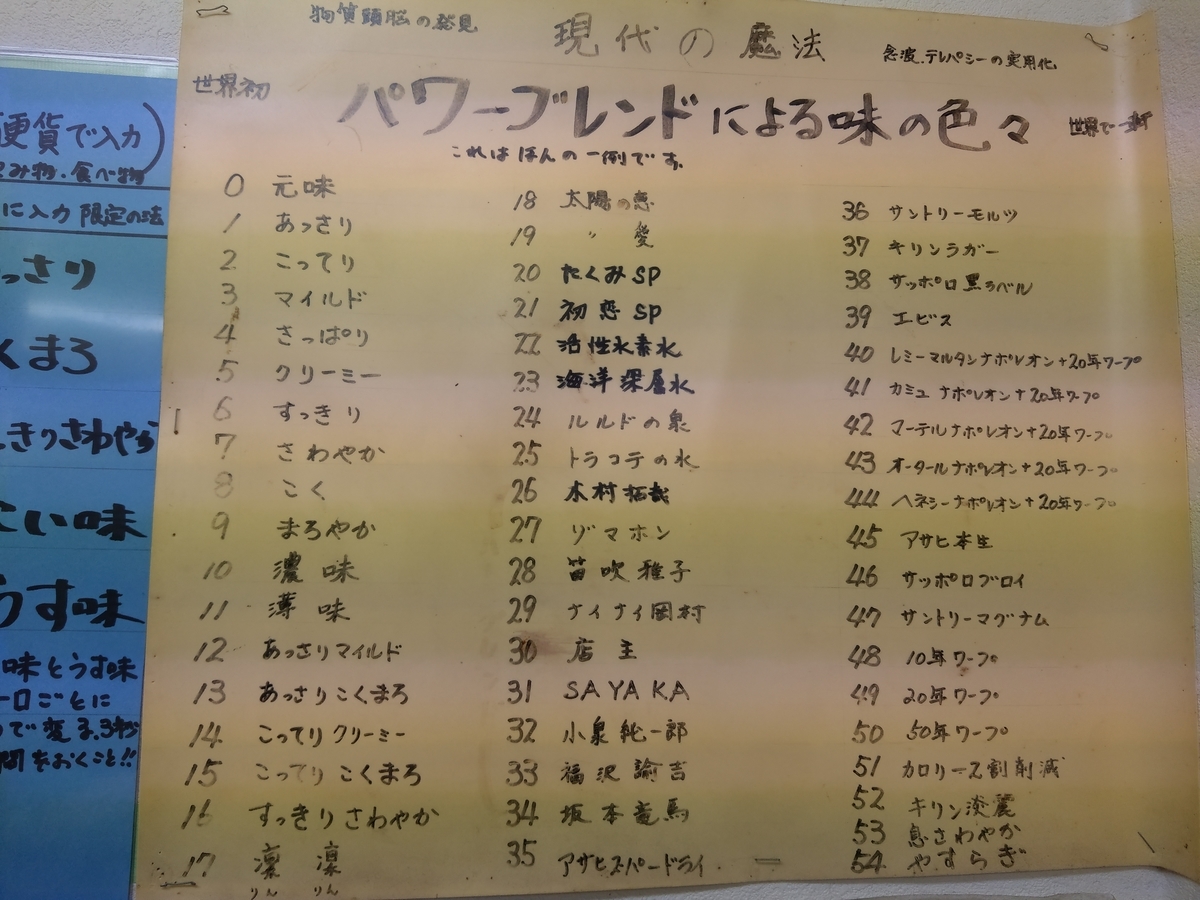 物質頭脳の発見
現代の魔法
念波.テレパシーの実用化
世界初
パワーブレンドによる味の色々
世界で一番
これはほんの一例です。
0 元味
1 あっさり
2 こってり
3 マイルド
4 さっぱり
5 クリーミー
6 すっきり
7 さわやか
8 こく
9 まろやか
10 濃味
11 薄味
12 あっさりマイルド
13 あっさりこくまろ
14 こってりクリーミー
15 こってりこくまろ
16 すっきりさわやか
17 凛凛
りん りん
18 太陽の恵
19 〃 愛
20 たくみSP
21 初恋SP
22 活性水素水
23 海洋深層水
24 ルルドの泉
25 トラコテの水
26 木村拓哉
27 ゾマホン
28 笛吹雅子
29 ナイナイ岡村
30 店主
31 SAYAKA
32 小泉純一郎
33 福沢諭吉
34 坂本竜馬
35 アサヒスーパードライ
36 サントリーモルツ
37 キリンラガー
38 サッポロ黒ラベル
39 エビス
40 レミーマルタンナポレオン+20年ワープ
41 カミュナポレオン+20年ワープ
42 マーテルナポレオン+20年ワープ
43 オータールナポレオン+20年ワープ
44 ヘネシーナポレオン+20年ワープ
45 アサヒ本生
46 サッポロブロイ
47 サントリーマグナム
48 10年ワープ
49 20年ワープ
50 50年ワープ
51 カロリー2割削減
52 キリン淡麗
53 息さわやか
54 やすらぎ
硬貨で入力)
み物.食べ物
に入力 限定の法
っさり
くまろ
っきりさわやか
こい味
うす味
味とうす味
一口ごとに
で変る.3秒
間をおくこと!!